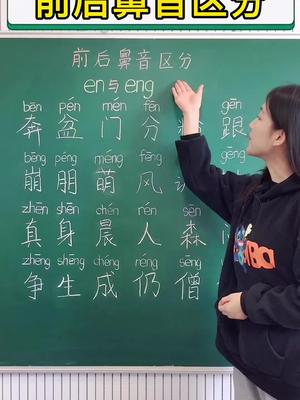 前后鼻音区分
前后鼻音区分
en与eng
bēn pén mén fēn gēn
奔 盆 门 分 跟
bēng péng méng fēng gēng
崩 朋 萌 风
zhēn shēn chén rén sēn
真 身 晨 人 森
zhēng shēng chéng réng sēng
争 生 成 仍 僧